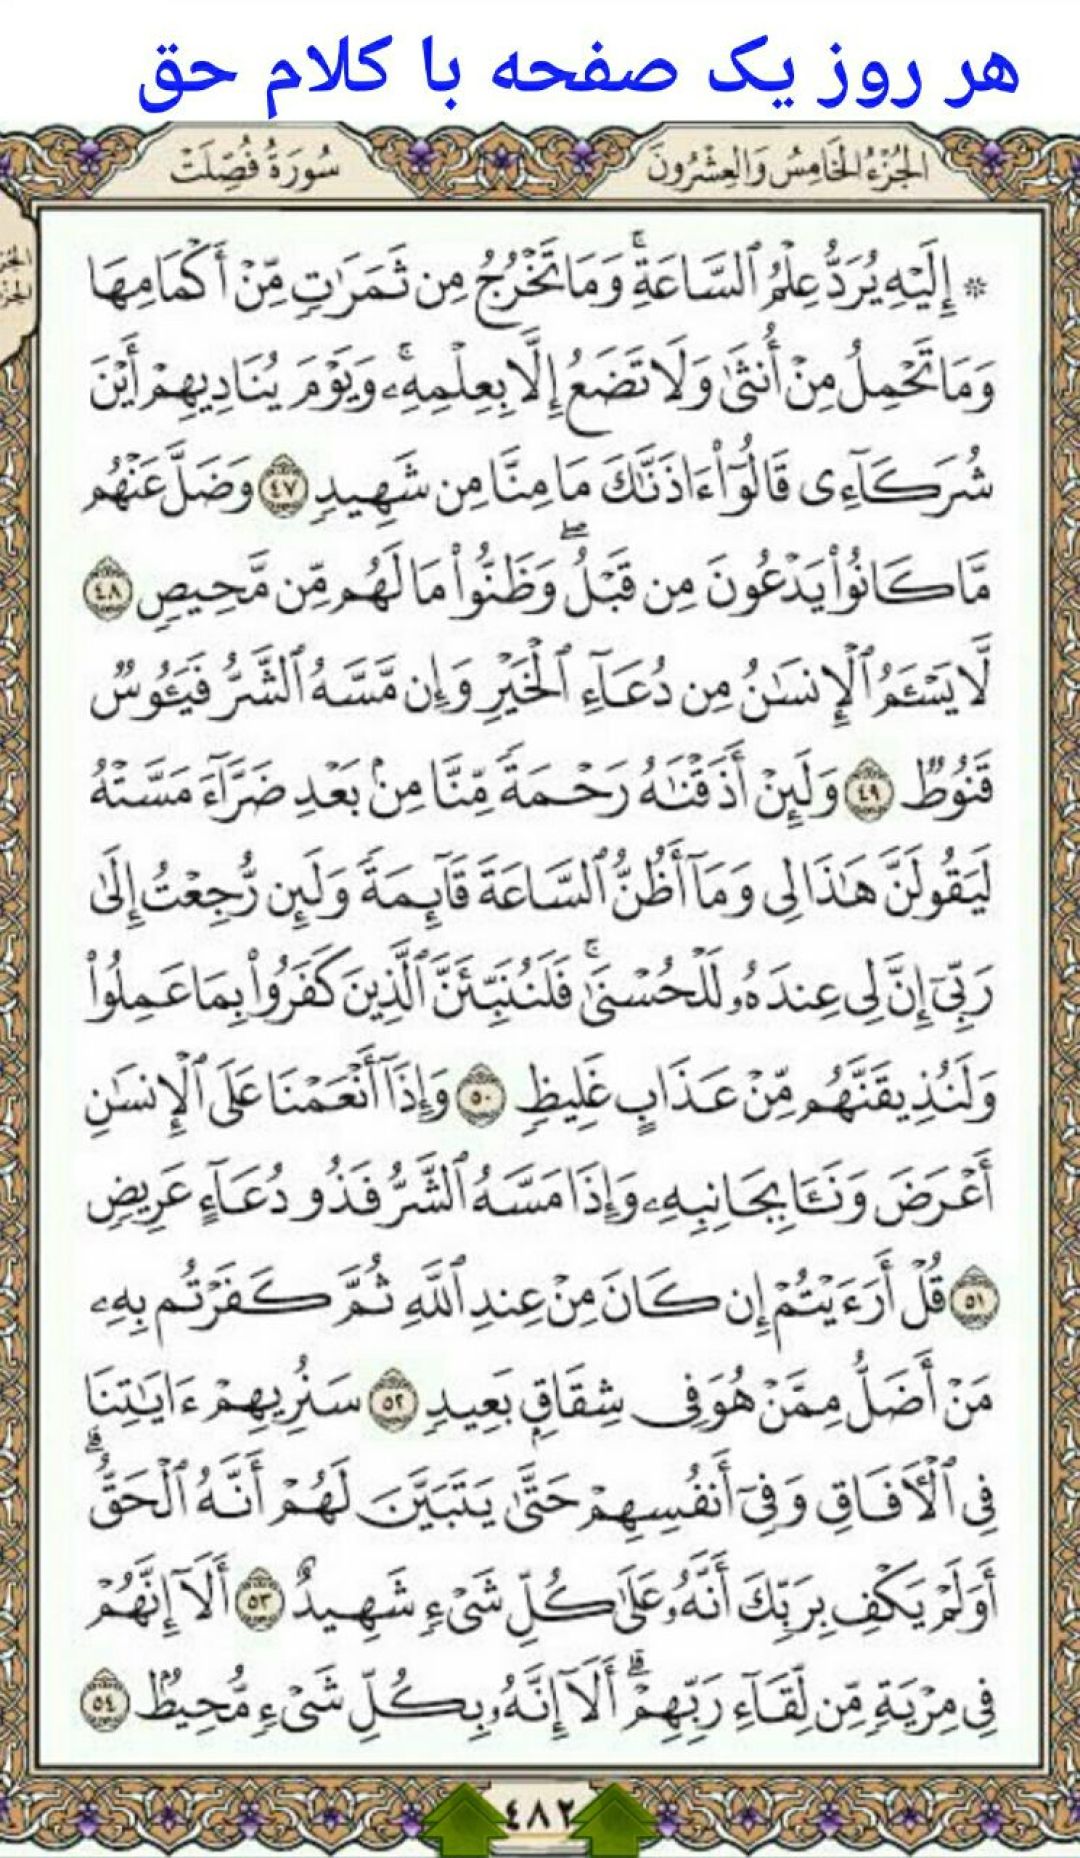 هر روز یک صفحه با کلام حق
الجُزْءُ الخَامِسُ وَالعِشْرُونَ
سُورَةُ فُصِّلَتْ
۞ إِلَيْهِ يُرَدُّ عِلْمُ ٱلسَّاعَةِۚ وَمَا تَخْرُجُ مِن ثَمَرَٰتٍ مِّنْ أَكْمَامِهَا
وَمَا تَحْمِلُ مِنْ أُنثَىٰ وَلَا تَضَعُ إِلَّا بِعِلْمِهِۦۚ وَيَوْمَ يُنَادِيهِمْ أَيْنَ
شُرَكَآءِى قَالُوٓا۟ ءَاذَنَّٰكَ مَا مِنَّا مِن شَهِيدٍ ٤٧ وَضَلَّ عَنْهُم
مَّا كَانُوا۟ يَدْعُونَ مِن قَبْلُۖ وَظَنُّوا۟ مَا لَهُم مِّن مَّحِيصٍ ٤٨
لَّا يَسْـَٔمُ ٱلْإِنسَٰنُ مِن دُعَآءِ ٱلْخَيْرِ وَإِن مَّسَّهُ ٱلشَّرُّ فَيَـُٔوسٌ
قَنُوطٌ ٤٩ وَلَئِنْ أَذَقْنَٰهُ رَحْمَةً مِّنَّا مِنۢ بَعْدِ ضَرَّآءَ مَسَّتْهُ
لَيَقُولَنَّ هَٰذَا لِى وَمَآ أَظُنُّ ٱلسَّاعَةَ قَآئِمَةً وَلَئِن رُّجِعْتُ إِلَىٰ
رَبِّىٓ إِنَّ لِى عِندَهُۥ لَلْحُسْنَىٰۚ فَلَنُنَبِّئَنَّ ٱلَّذِينَ كَفَرُوا۟ بِمَا عَمِلُوا۟
وَلَنُذِيقَنَّهُم مِّنْ عَذَابٍ غَلِيظٍ ٥٠ وَإِذَآ أَنْعَمْنَا عَلَى ٱلْإِنسَٰنِ
أَعْرَضَ وَنَـَٔا بِجَانِبِهِۦ وَإِذَا مَسَّهُ ٱلشَّرُّ فَذُو دُعَآءٍ عَرِيضٍ
٥١ قُلْ أَرَءَيْتُمْ إِن كَانَ مِنْ عِندِ ٱللَّهِ ثُمَّ كَفَرْتُم بِهِۦ
مَنْ أَضَلُّ مِمَّنْ هُوَ فِى شِقَاقٍۭ بَعِيدٍ ٥٢ سَنُرِيهِمْ ءَايَٰتِنَا
فِى ٱلْءَافَاقِ وَفِىٓ أَنفُسِهِمْ حَتَّىٰ يَتَبَيَّنَ لَهُمْ أَنَّهُ ٱلْحَقُّۗ
أَوَلَمْ يَكْفِ بِرَبِّكَ أَنَّهُۥ عَلَىٰ كُلِّ شَىْءٍ شَهِيدٌ ٥٣ أَلَآ إِنَّهُمْ
فِى مِرْيَةٍ مِّن لِّقَآءِ رَبِّهِمْۗ أَلَآ إِنَّهُۥ بِكُلِّ شَىْءٍ مُّحِيطٌۢ ٥٤
٤٨٢